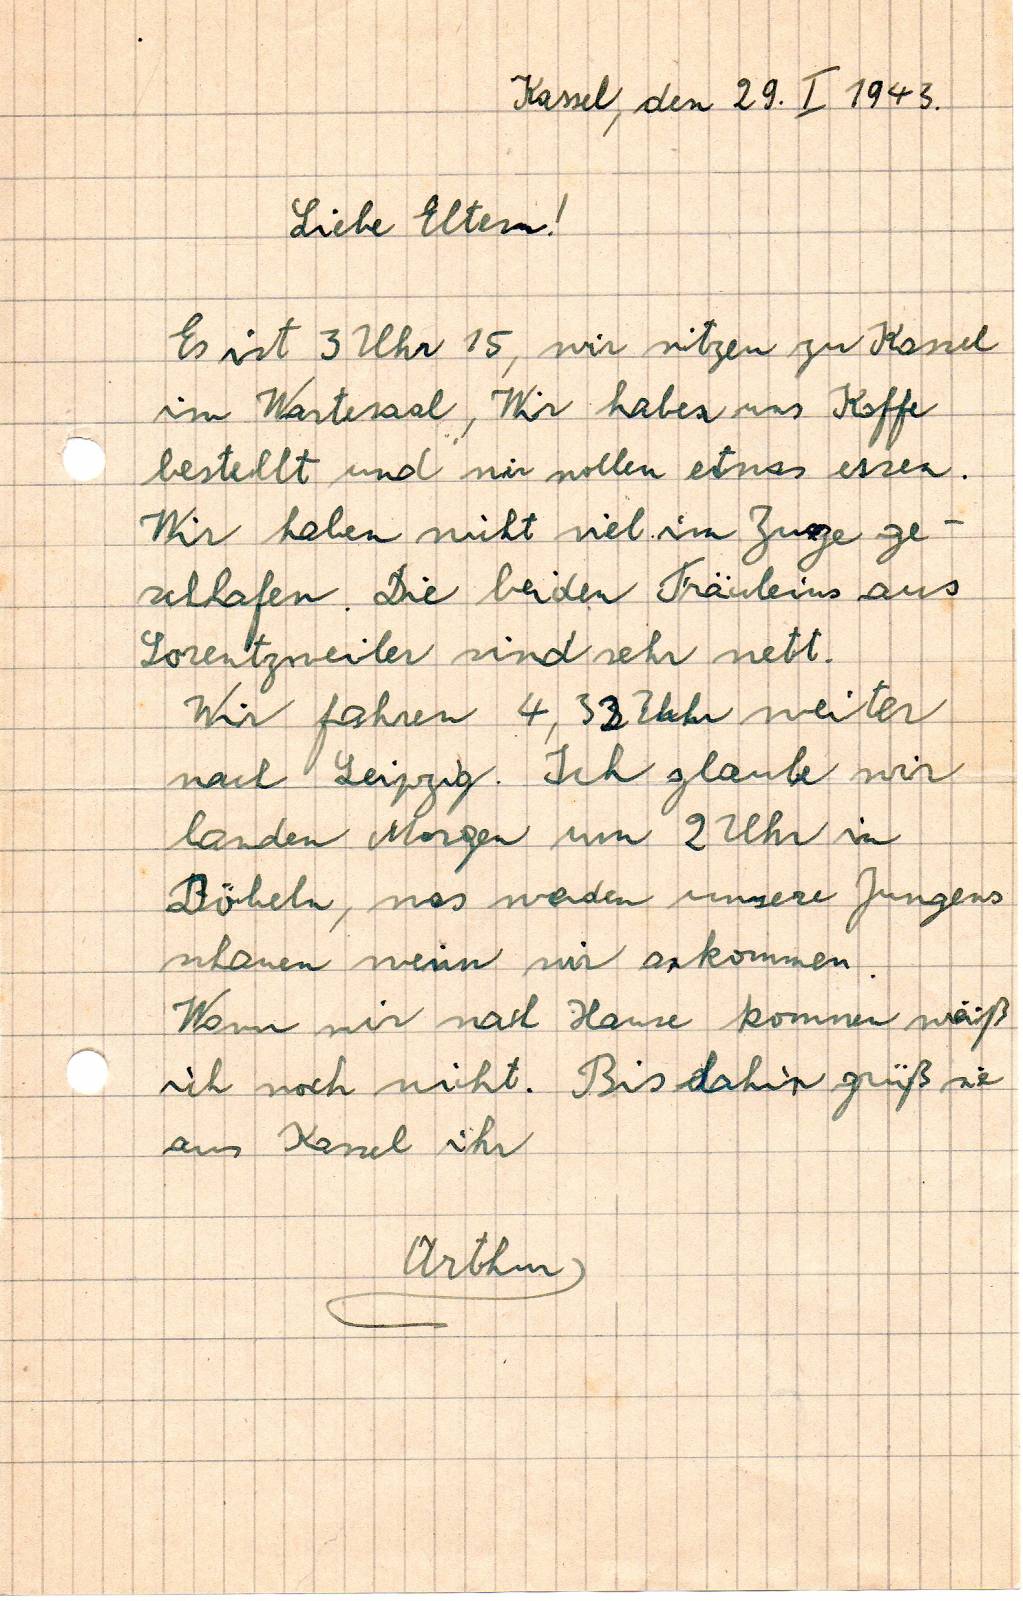 Kassel, den 29. I 1943.
Liebe Eltern!
Es ist 3 Uhr 15, wir sitzen zu Kassel
im Wartesaal, Wir haben uns Kaffe
bestellt und wir wollen etwas essen.
Wir haben nicht viel im Zuge ge-
schlafen. Die beiden Fräuleins aus
Lorentzweiler sind sehr nett.
Wir fahren 4,33 Uhr weiter
nach Leipzig. Ich glaube wir
landen Morgen um 2 Uhr in
Döbeln, was werden unsere Jungens
schauen wenn wir ankommen.
Wann wir nach Hause kommen weiß
ich noch nicht. Bis dahin grüß sie
aus Kassel ihr
Arthur